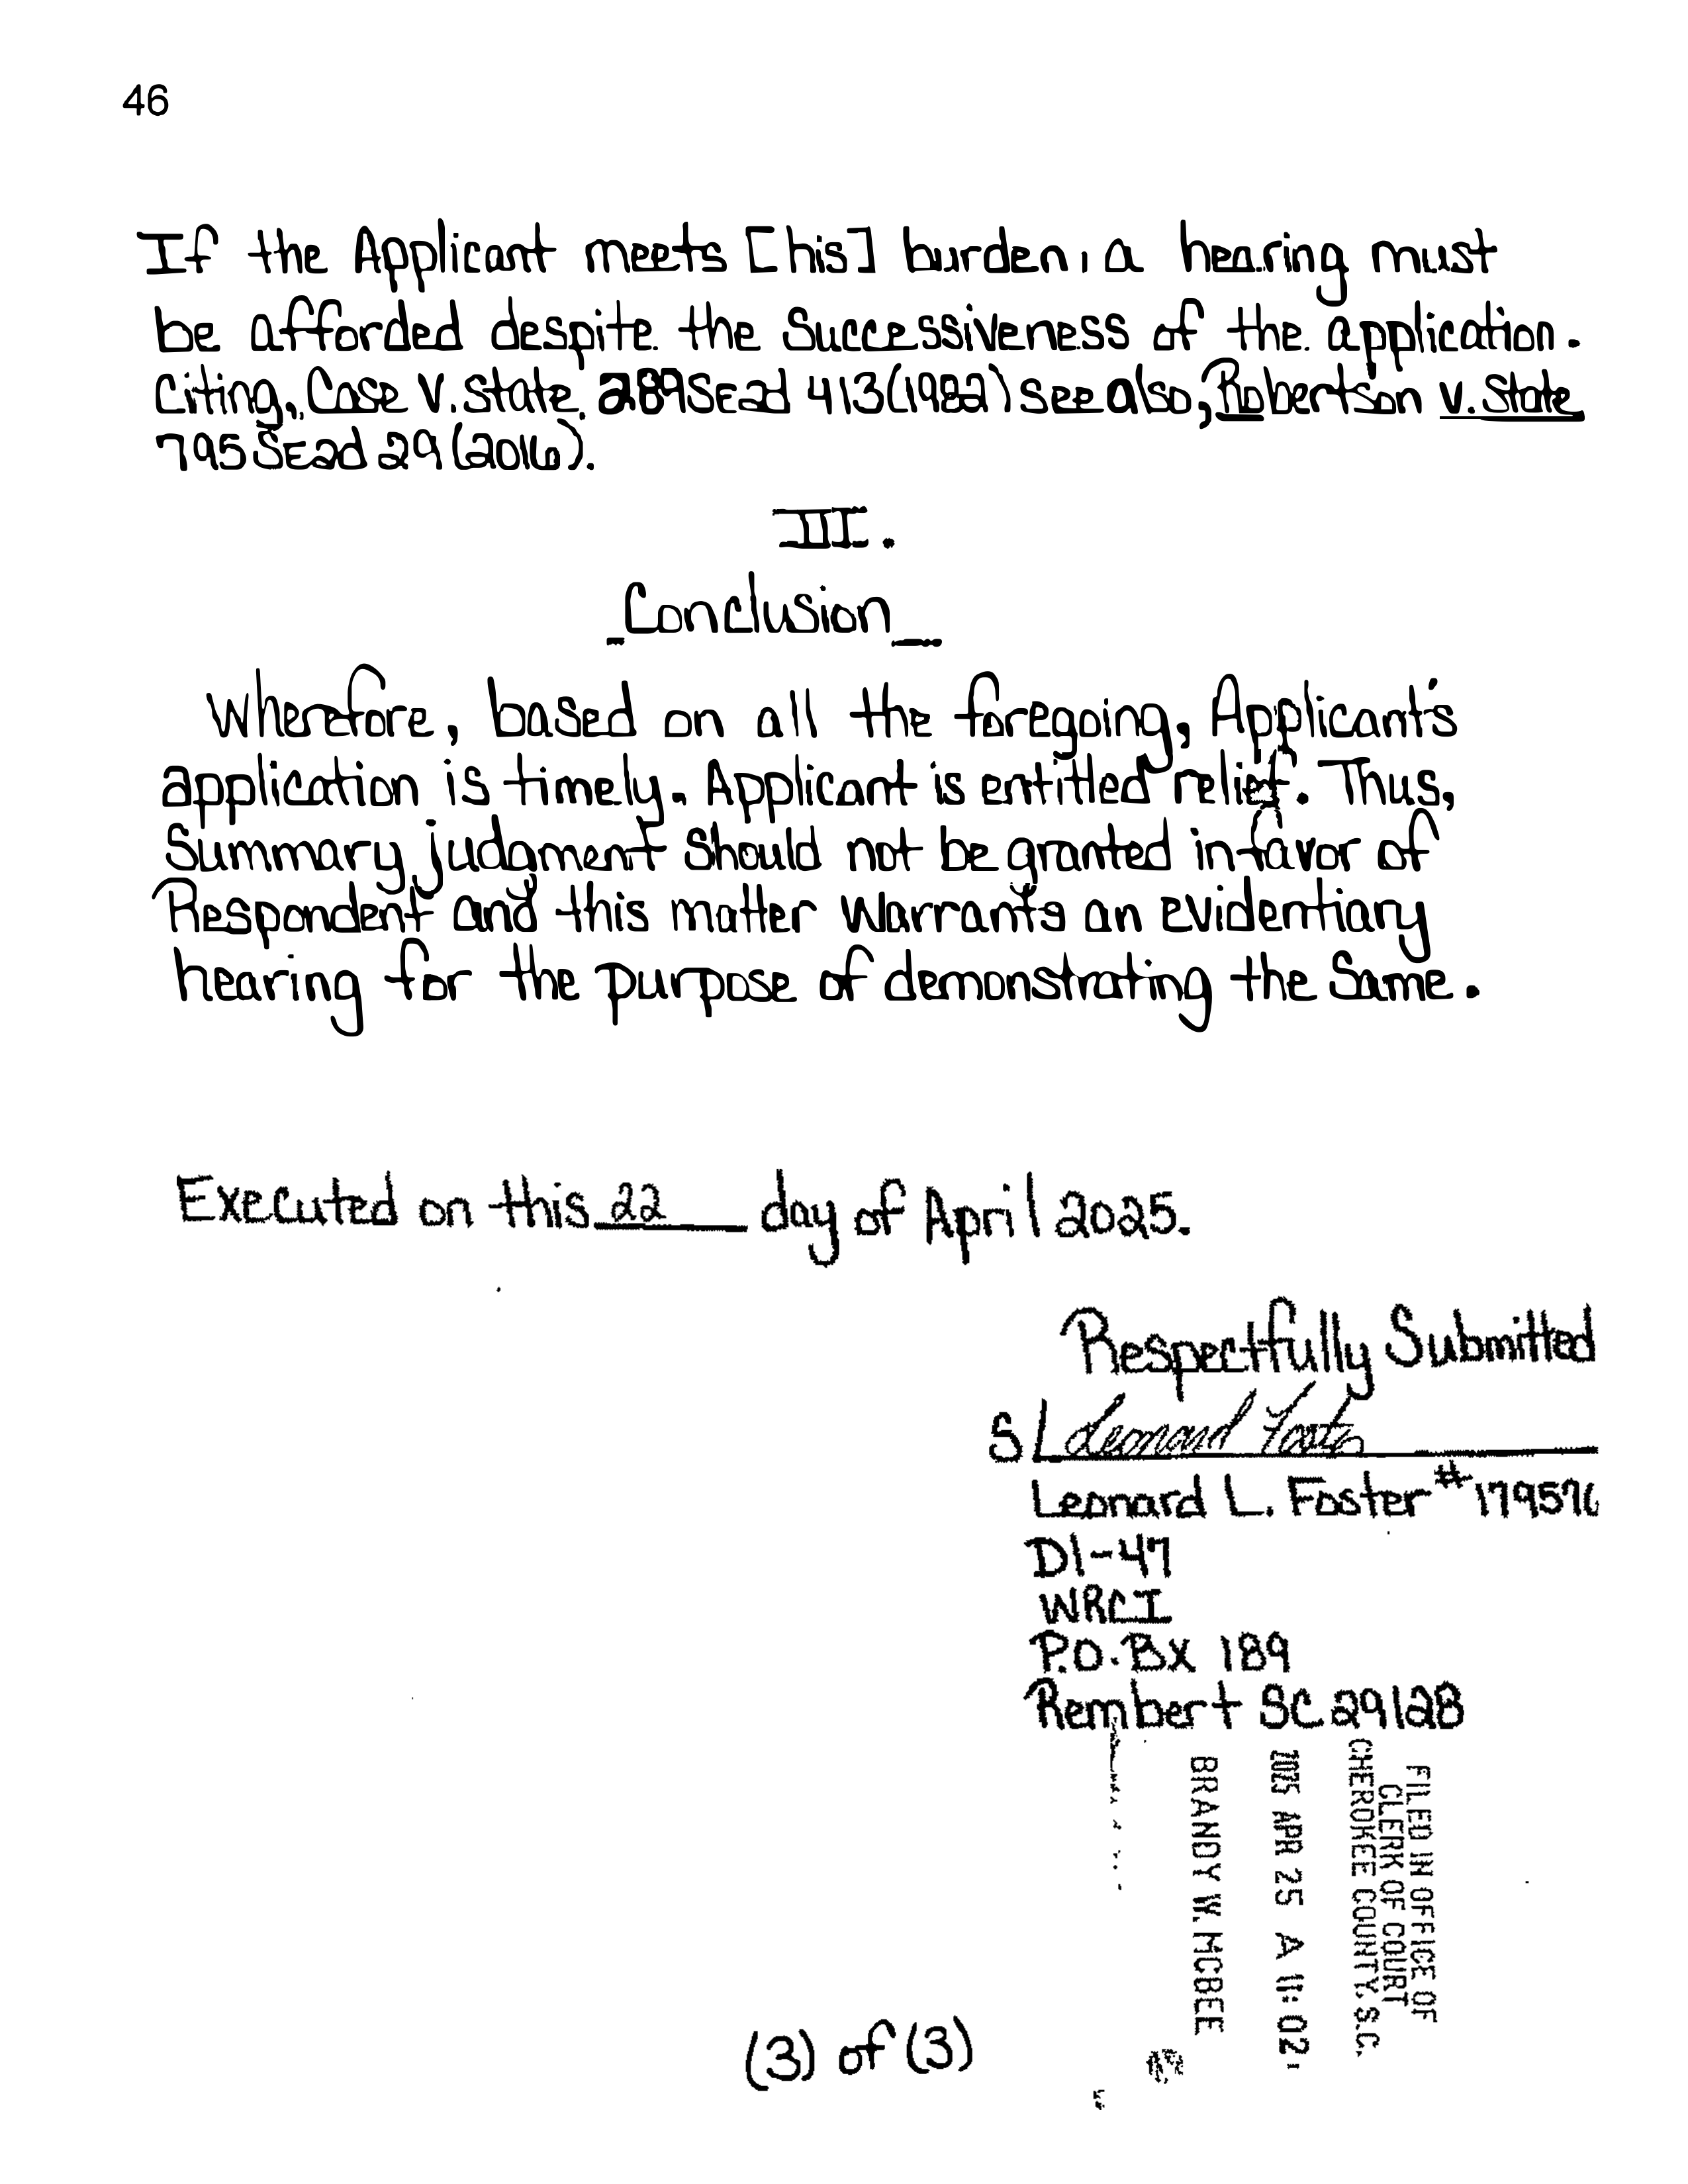 46
If the Applicant meets [his] burden, a hearing must
be afforded despite the Successiveness of the application.
Citing, Case V. State, 289 SE2d 413 (1982) See also, Robertson v. State
795 SE2d 29 (2016).
III.
Conclusion
Wherefore, based on all the foregoing, Applicant's
application is timely. Applicant is entitled relief. Thus,
Summary judgment Should not be granted in favor of
Respondent and this matter Warrants an evidentiary
hearing for the purpose of demonstrating the Same.
Executed on this 22 day of April 2025.
Respectfully Submitted
S/ Leonard Foster
Leonard L. Foster #179576
D1-47
WRCI
P.O. BX 189
Rembert SC 29128
FILED IN OFFICE OF
CLERK OF COURT
CHEROKEE COUNTY, S.C.
2025 APR 25 A 11: 02
BRANDY W. MCBEE
(3) of (3)